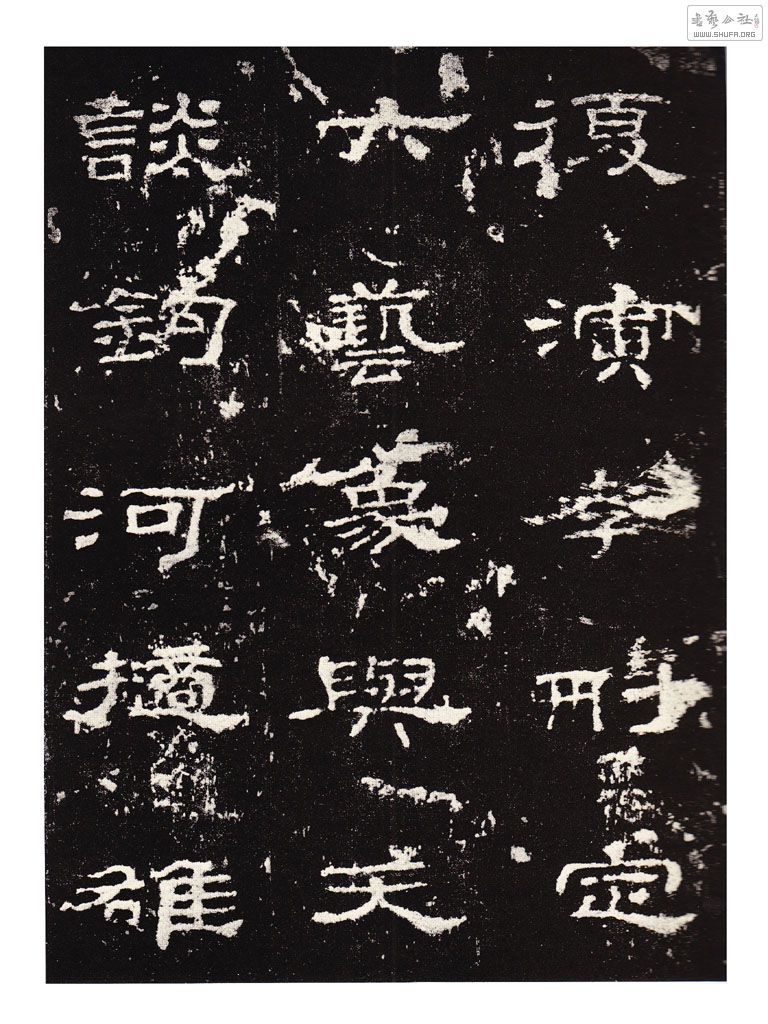 復演孝刪定
六藝象與天
談鉤河擿雒
書藝公社
WWW.SHUFA.ORG